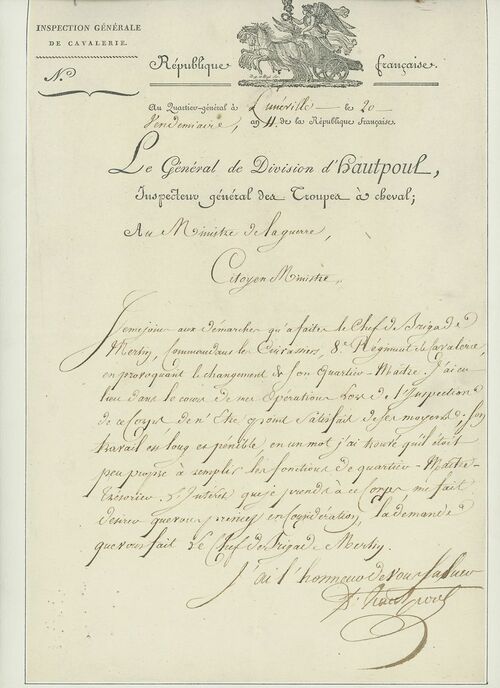 INSPECTION GÉNÉRALE
DE CAVALERIE.
N.º
République française.
Au Quartier-général à Lunéville le 20
Vendemiaire, an 11. de la République Française.
Le Général de Division d'hautpoul,
Inspecteur général des Troupes à cheval;
Au Ministre de la guerre,
Citoyen Ministre,
Je me joins aux démarches qu'a faites le Chef de Brigade
Merlin, Commandant les Cuirassiers, 8.e Régiment de Cavalerie,
en provoquant le changement de son Quartier-Maître. J'ai eu
lieu dans le cours de mes Opérations lors de l'Inspection
de ce Corps de n'Etre point Satisfait de ses moyens; son
travail est long et pénible en un mot j'ai trouvé qu'il était
peu propre à remplir les fonctions de quartier-Maître-
trésorier. L'Intérêt que je prends à ce Corps me fait
désirer que vous preniez en Considération, la demande
que vous fait Le Chef de Brigade Merlin.
J'ai l'honneur de vous Saluer
d'hautpoul